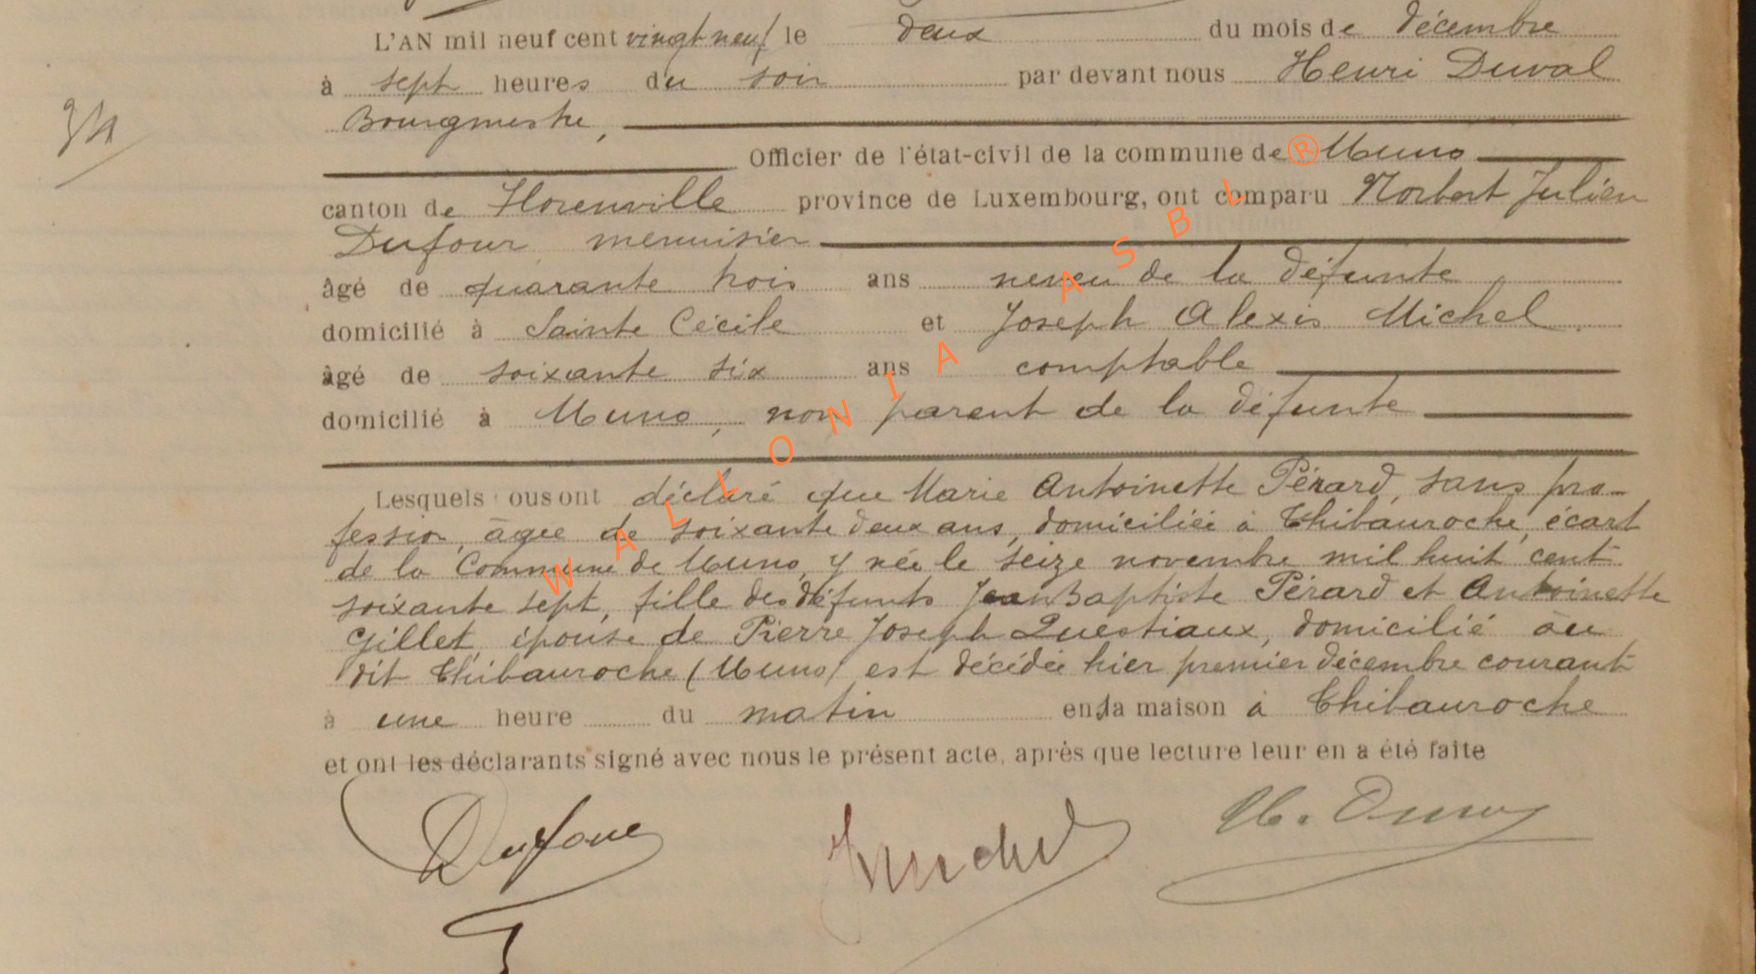 L'AN mil neuf cent vingt neuf le deux du mois de décembre
à sept heures du soir par devant nous Henri Duval
Bourgmestre,
Officier de l'état-civil de la commune de Muno
canton de Florenville province de Luxembourg, ont comparu Norbert Julien
Dufour menuisier
âgé de quarante trois ans neveu de la défunte
domicilié à Sainte Cécile et Joseph Alexis Michel
âgé de soixante six ans comptable
domicilié à Muno, non parent de la défunte
Lesquels ous ont déclaré que Marie Antoinette Pérard, sans pro-
fession, âgée de soixante deux ans, domiciliée à Thibauroche, écart
de la Commune de Muno, y née le seize novembre mil huit cent
soixante sept, fille des défunts Jean Baptiste Pérard et Antoinette
Gillet, épouse de Pierre Joseph Questiaux, domicilié au
dit Thibauroche (Muno) est décédée hier premier décembre courant
à une heure du matin en sa maison à Thibauroche
et ont les déclarants signé avec nous le présent acte, après que lecture leur en a été faite
Dufour
JMichel
H. Duval
WALLONIA ASBL ®